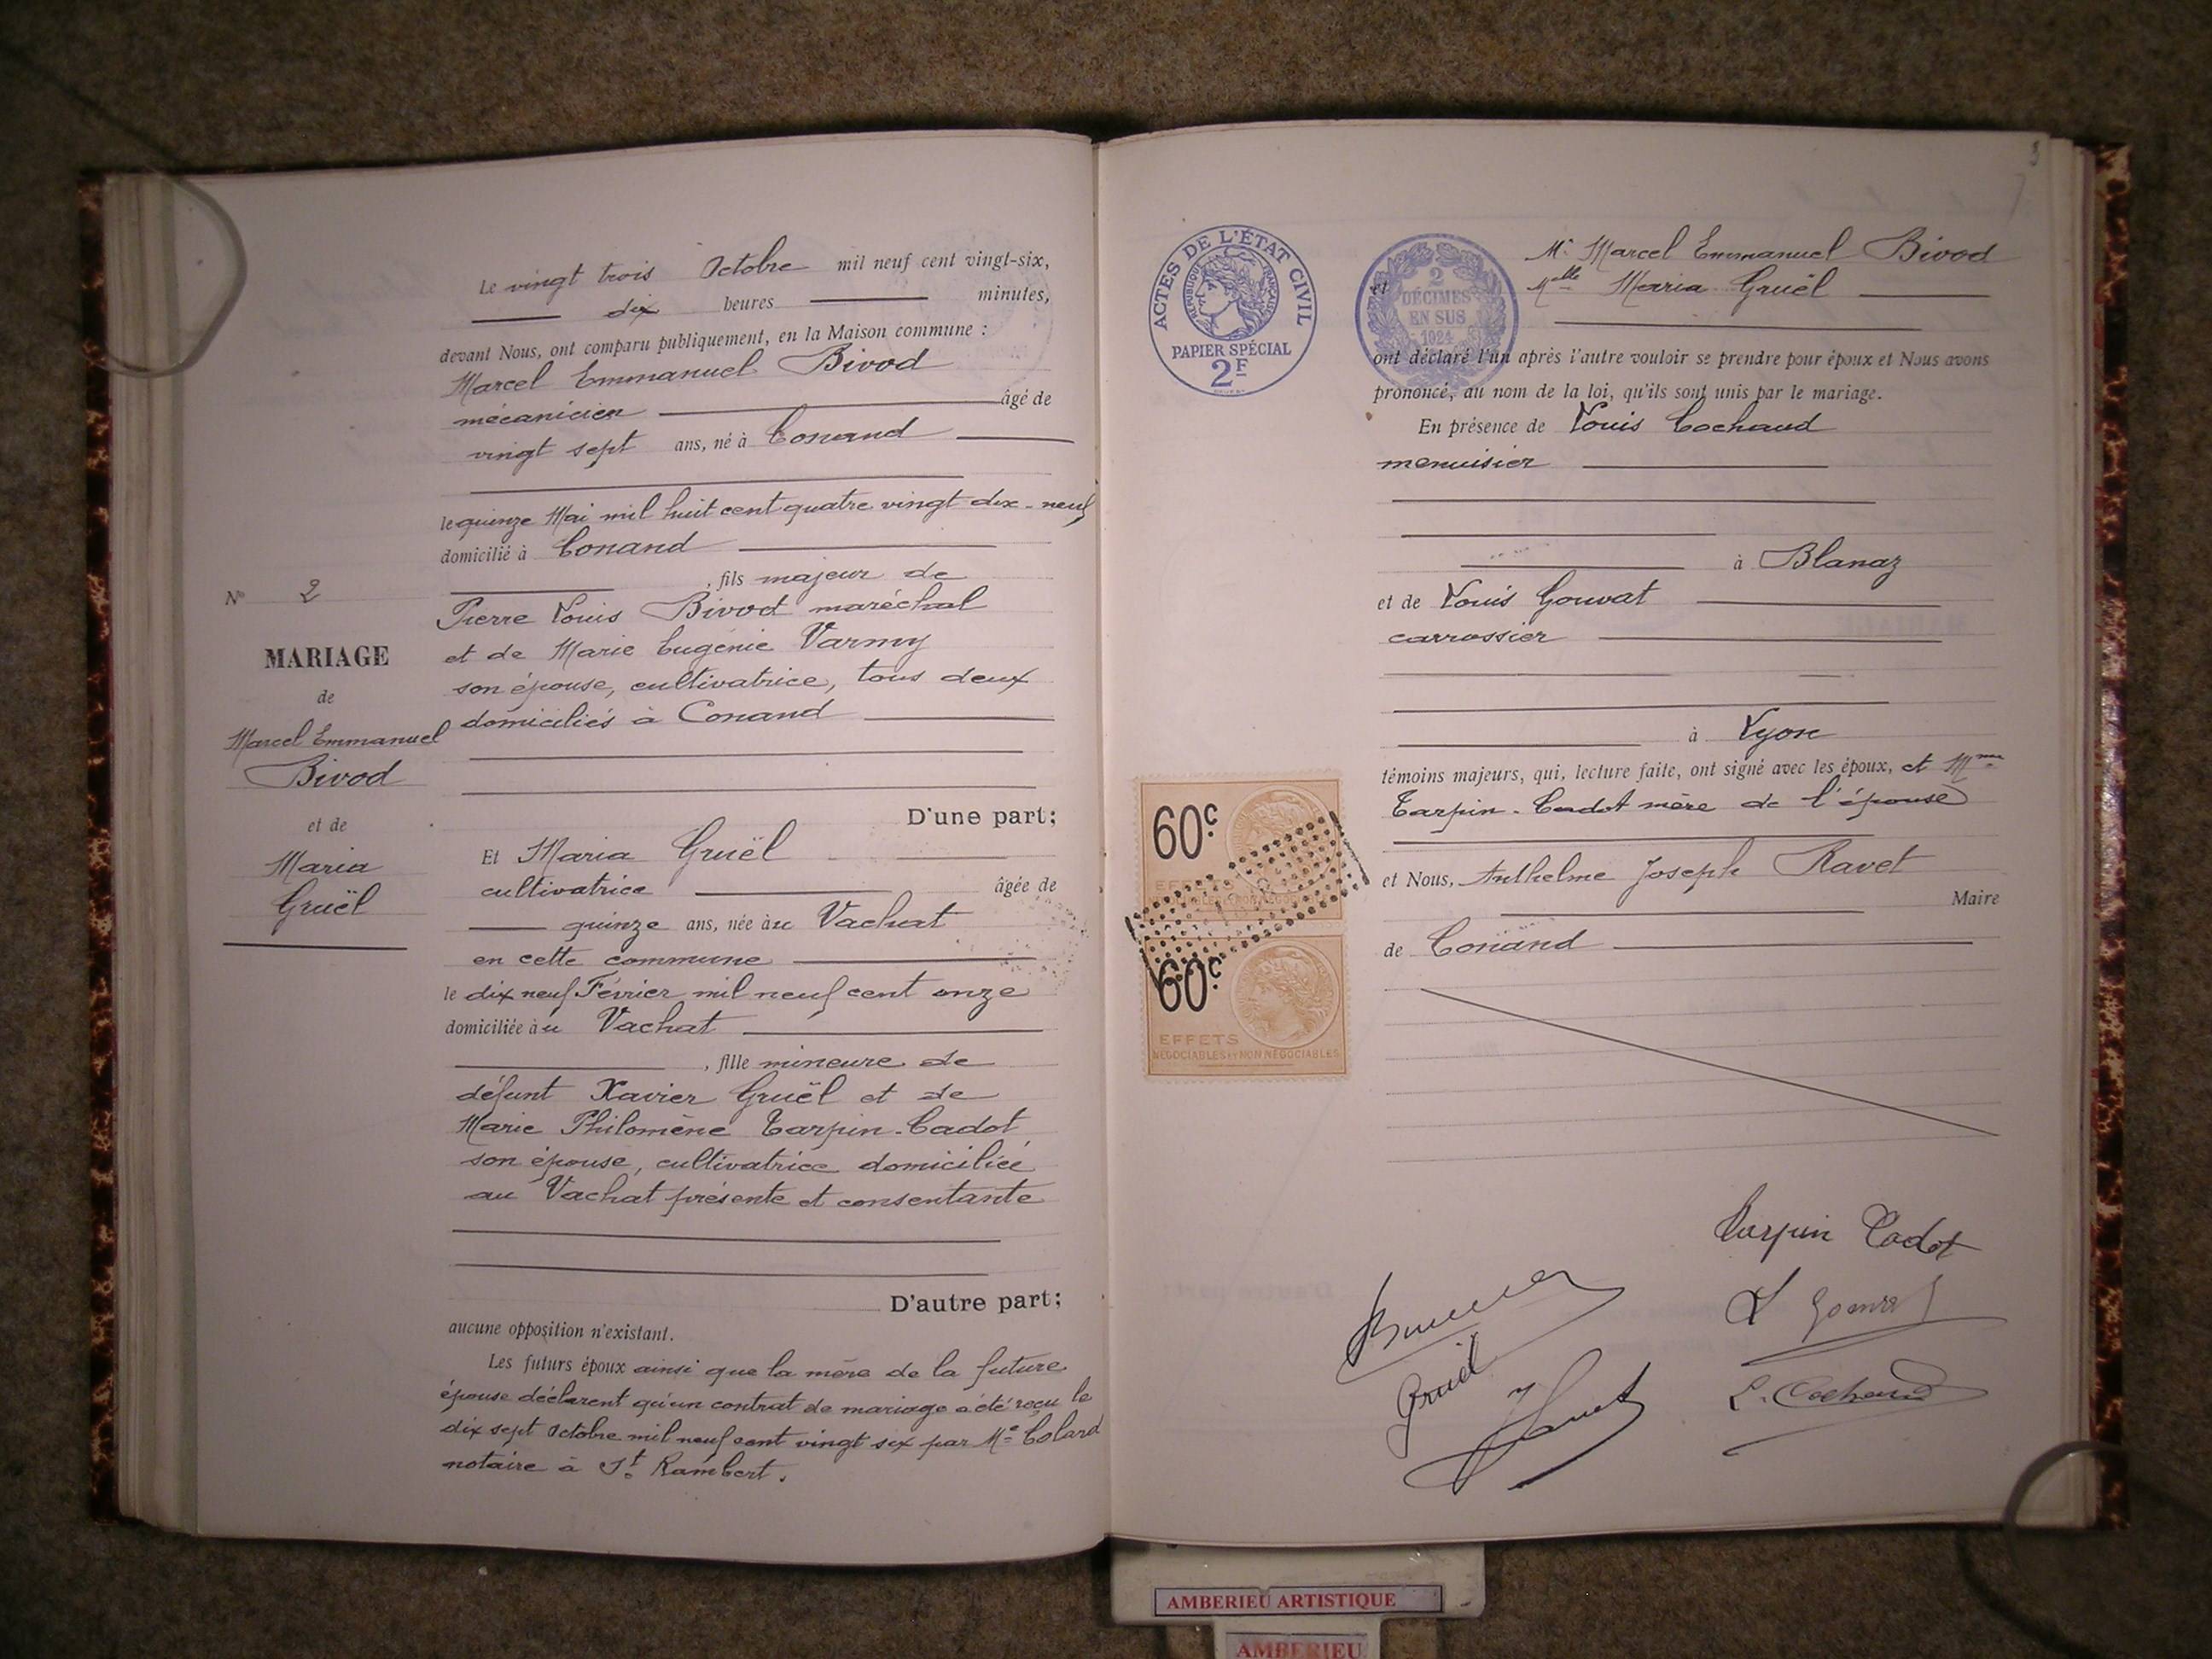 Le vingt trois Octobre mil neuf cent vingt-six,
dix heures minutes,
devant Nous, ont comparu publiquement, en la Maison commune :
Marcel Emmanuel Bivod
mécanicien âgé de
vingt sept ans, né à Conand
le quinze Mai mil huit cent quatre vingt dix-neuf,
domicilié à Conand
, fils majeur de
Pierre Louis Bivod maréchal
et de Marie Eugénie Varmy
son épouse, cultivatrice, tous deux
domiciliés à Conand
D'une part;
N° 2
MARIAGE
de
Marcel Emmanuel
Bivod
et de
Maria
Gruël
Et Maria Gruël
cultivatrice âgée de
quinze ans, née au Vachat
en cette commune
le dix neuf Février mil neuf cent onze
domiciliée au Vachat
, fille mineure de
défunt Xavier Gruël et de
Marie Philomène Tarpin-Cadot,
son épouse, cultivatrice domiciliée
au Vachat présente et consentante
D'autre part;
aucune opposition n'existant.
Les futurs époux ainsi que la mère de la future
épouse déclarent qu'un contrat de mariage a été reçu le
dix sept Octobre mil neuf cent vingt six par Me Colard
notaire à St Rambert.
3
ACTES DE L'ÉTAT CIVIL
RÉPUBLIQUE FRANÇAISE
PAPIER SPÉCIAL
2F
2
DÉCIMES
EN SUS
1924
Mr Marcel Emmanuel Bivod
et Melle Maria Gruël
ont déclaré l'un après l'autre vouloir se prendre pour époux et Nous avons
prononcé, au nom de la loi, qu'ils sont unis par le mariage.
En présence de Louis Cochaud
menuisier
à Blanaz
et de Louis Gouvat
carrossier
à Lyon
témoins majeurs, qui, lecture faite, ont signé avec les époux, et Mme
Tarpin-Cadot mère de l'épouse
et Nous, Anthelme Joseph Ravet
Maire
de Conand
60c
EFFETS
60c
EFFETS
NÉGOCIABLES ET NON NÉGOCIABLES
Tarpin Cadot
Gruël
L. Cochaud
AMBERIEU ARTISTIQUE
AMBERIEU